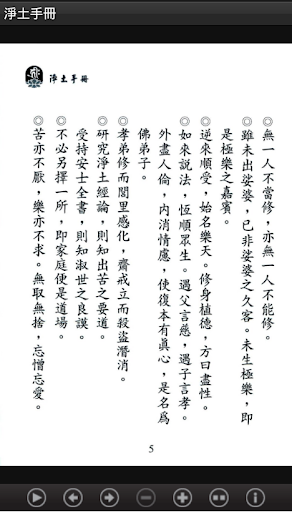 淨土手冊
淨土手冊
◎無一人不當修，亦無一人不能修。
◎雖未出娑婆，已非娑婆之久客。未生極樂，即
是極樂之嘉賓。
◎逆來順受，始名樂天。修身植德，方曰盡性。
◎如來說法，恆順眾生。遇父言慈，遇子言孝。
外盡人倫，內消情慮，使復本有真心，是名為
佛弟子。
◎孝弟修而閭里感化，齋戒立而殺盜潛消。
◎研究淨土經論，則知出苦之要道。
受持安士全書，則知淑世之良謨。
◎不必另擇一所，即家庭便是道場。
◎苦亦不厭，樂亦不求。無取無捨，忘憎忘愛。
5